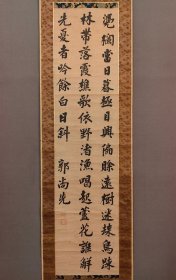 凭栏當日暮極目興偏賒遠樹迷歸鳥疎
林帶落霞樵歌依野渚漁唱起蘆花誰解
先憂者吟餘白日斜　郭尚先